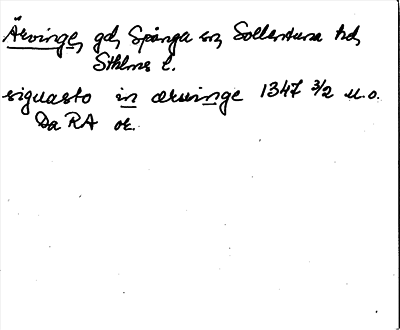 Ärvinge, gd, Spånga sn, Sollentuna hd,
Sthlms l.
siguasto in æruinge 1347 3/2 u.o.
Da RA or.